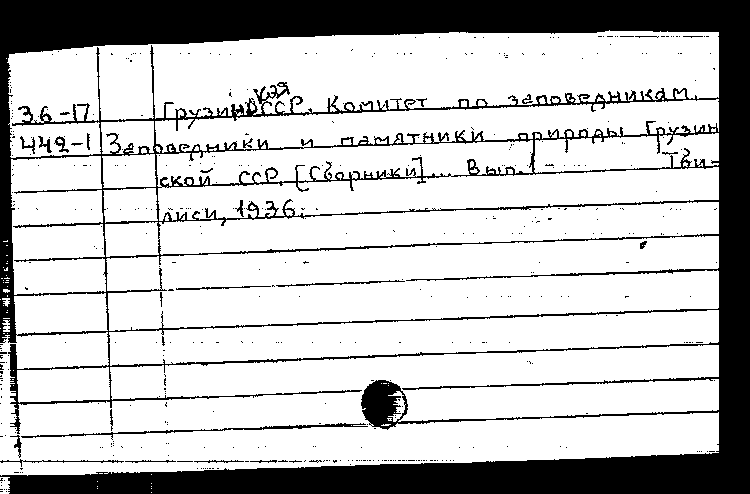 36-17 Грузинская ССР. Комитет по заповедникам.
442-1 Заповедники и памятники природы Грузин
ской ССР. [Сборники]... Вып. 1- Тби=
лиси, 1936.